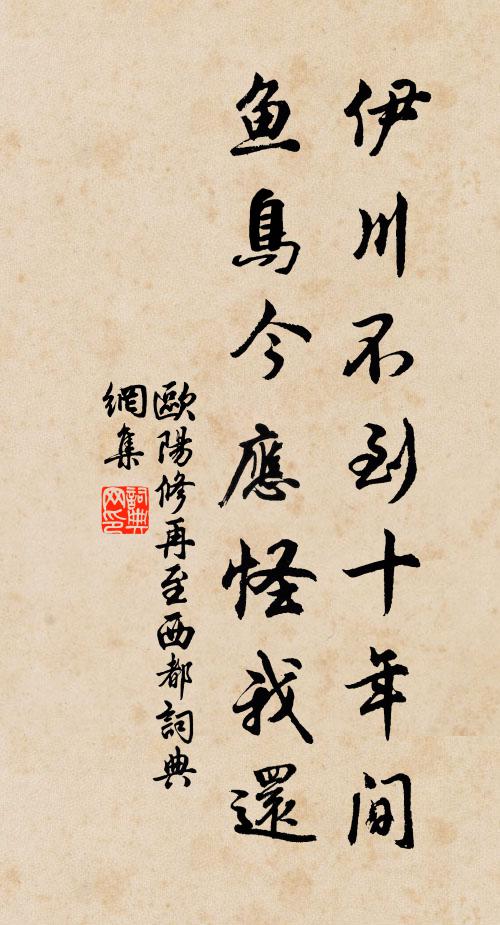 伊川不到十年間
魚鳥今應怪我還
歐陽修再至西都詞典
網集
詞典网印